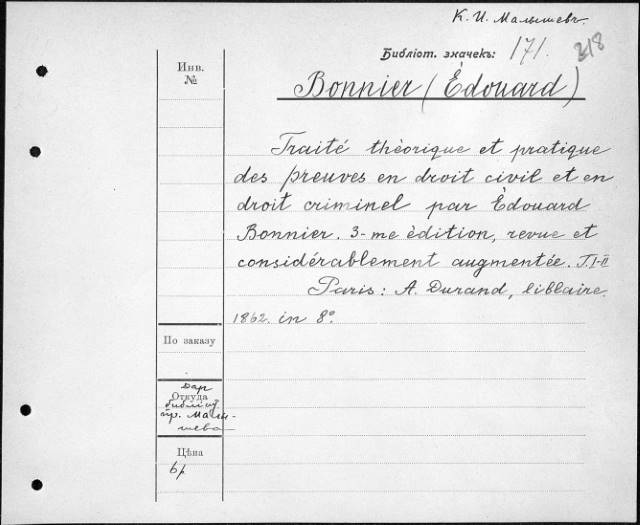 К. И. Малышевъ.
Библіот. значекъ: 171. 318
Инв.
№
Bonnier (Èdouard)
Traité thèorique et pratique
des preuves en droit civil et en
droit criminel par Èdouard
Bonnier. 3-me èdition, revue et
considérablement augmentée. T.I-II
Paris: A. Durand, libbaire.
1862. in 8º.
По заказу
Откуда
Дар
библіот.
пр. Малы-
шева
Цѣна
6р